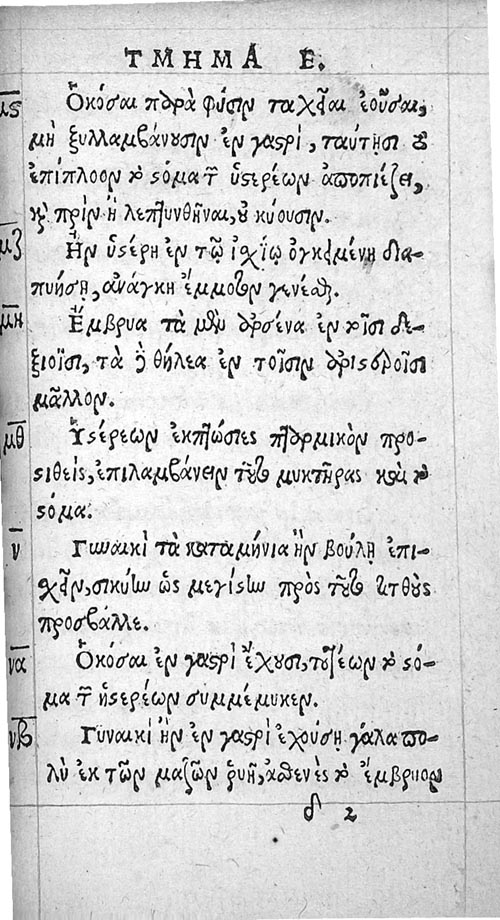 ΤΜΗΜΑ Ε.
μϛ Ὁκόσαι παρὰ φύσιν παχεῖαι ἐοῦσαι,
μὴ ξυλλαμβάνουσιν ἐν γαστρὶ, ταύτῃσι τὸ
ἐπίπλοον τὸ στόμα τῶν ὑστερέων ἀποπιέζει,
καὶ πρὶν ἢ λεπτυνθῆναι, οὐ κύουσιν.
μζ Ἢν ὑστέρη ἐν τῷ ἰσχίῳ ὀγκειμένη δια-
πυήσῃ, ἀνάγκη ἔμμοτον γενέσθαι.
μη Ἔμβρυα τὰ μὲν ἄρσένα ἐν τοῖσι δε-
ξιοῖσι, τὰ δὲ θήλεα ἐν τοῖσιν ἀριστεροῖσι
μᾶλλον.
μθ Ὑστέρεων ἐκπτώσιες πταρμικὸν προ-
στιθεὶς, ἐπιλαμβάνειν τοὺς μυκτῆρας καὶ τὸ
στόμα.
ν Γυναικὶ τὰ καταμήνια ἢν βούλῃ ἐπι-
σχεῖν, σικύην ὡς μεγίστην πρὸς τοὺς τιτθοὺς
προσβάλλε.
να Ὁκόσαι ἐν γαστρὶ ἔχουσι, τουτέων τὸ στό-
μα τῶν ὑστερέων συμμέμυκεν.
νβ Γυναικὶ ἢν ἐν γαστρὶ ἐχούσῃ γάλα πο-
λὺ ἐκ τῶν μαζῶν ῥυῇ, ἀσθενὲς τὸ ἔμβρυον
δ 2